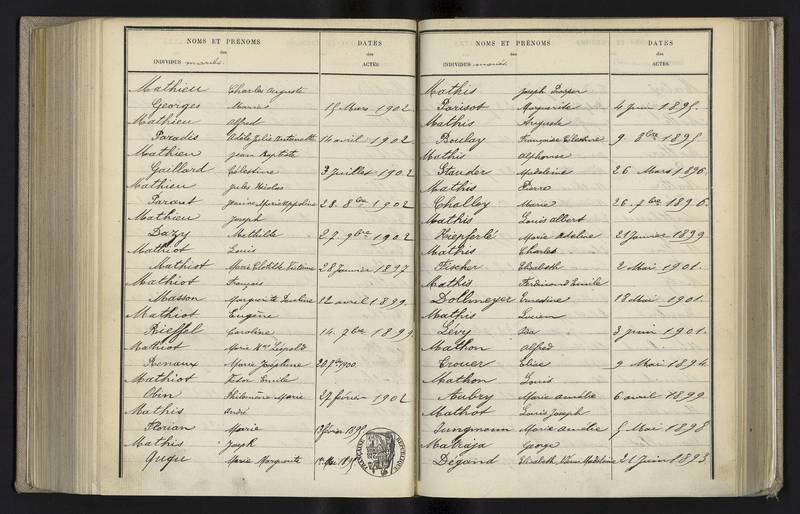 NOMS ET PRÉNOMS DATES
des des
INDIVIDUS mariés. ACTES
Mathieu Charles Auguste
Georges Marie 15 Mars 1902
Mathieu Alfred
Paradis Adèle Julie Antoinette 14 avril 1902
Mathieu Jean Baptiste
Gaillard Célestine 3 Juillet 1902
Mathieu Jules Nicolas
Parant Jeanne Marie Appoline 28. 8bre 1902
Mathieu Joseph
Dazy Mathilde 27. 9bre 1902
Mathiot Louis
Mathiot Marie Clotilde 28 Janvier 1897
Mathiot François
Masson Marguerite Pauline 12 avril 1899.
Mathiot Eugène
Rieffel Caroline 14. 7bre 1899
Mathiot Marie Léopold
Renaux Marie Joséphine 20. 1900.
Mathiot Emile
Obin Philomène Marie 27 février 1902
Mathis André
Florian Marie février
Mathis Joseph
Marie Marguerite Mai
NOMS ET PRÉNOMS DATES
des des
INDIVIDUS mariés. ACTES
Mathis Joseph Prosper
Parisot Marguerite 4 Juin 1895.
Mathis Auguste
Boulay Françoise Célestine 9. 8bre 1895
Mathis Alphonse
Stauder Madeleine 26 Mars 1896.
Mathis Pierre
Challoy Marie 26. 7bre 1896.
Mathis Louis Albert
Kiepferlé Marie Adeline 21 Janvier 1899
Mathis Charles
Fischer Elisabeth 2 Mai 1901.
Mathis Ferdinand Emile
Dollmeyer Ernestine 18 Mai 1901.
Mathis Lucien
Lévy 3 Juin 1901.
Mathon Alfred
Elise 9 Mai 1894.
Mathon Louis
Aubry Marie Amélie 6 avril 1899
Mathot Louis Joseph
Jungmann Marie Amélie 5 Mai 1898
George
Dégand Elisabeth Madeleine 21 Juin 1893.